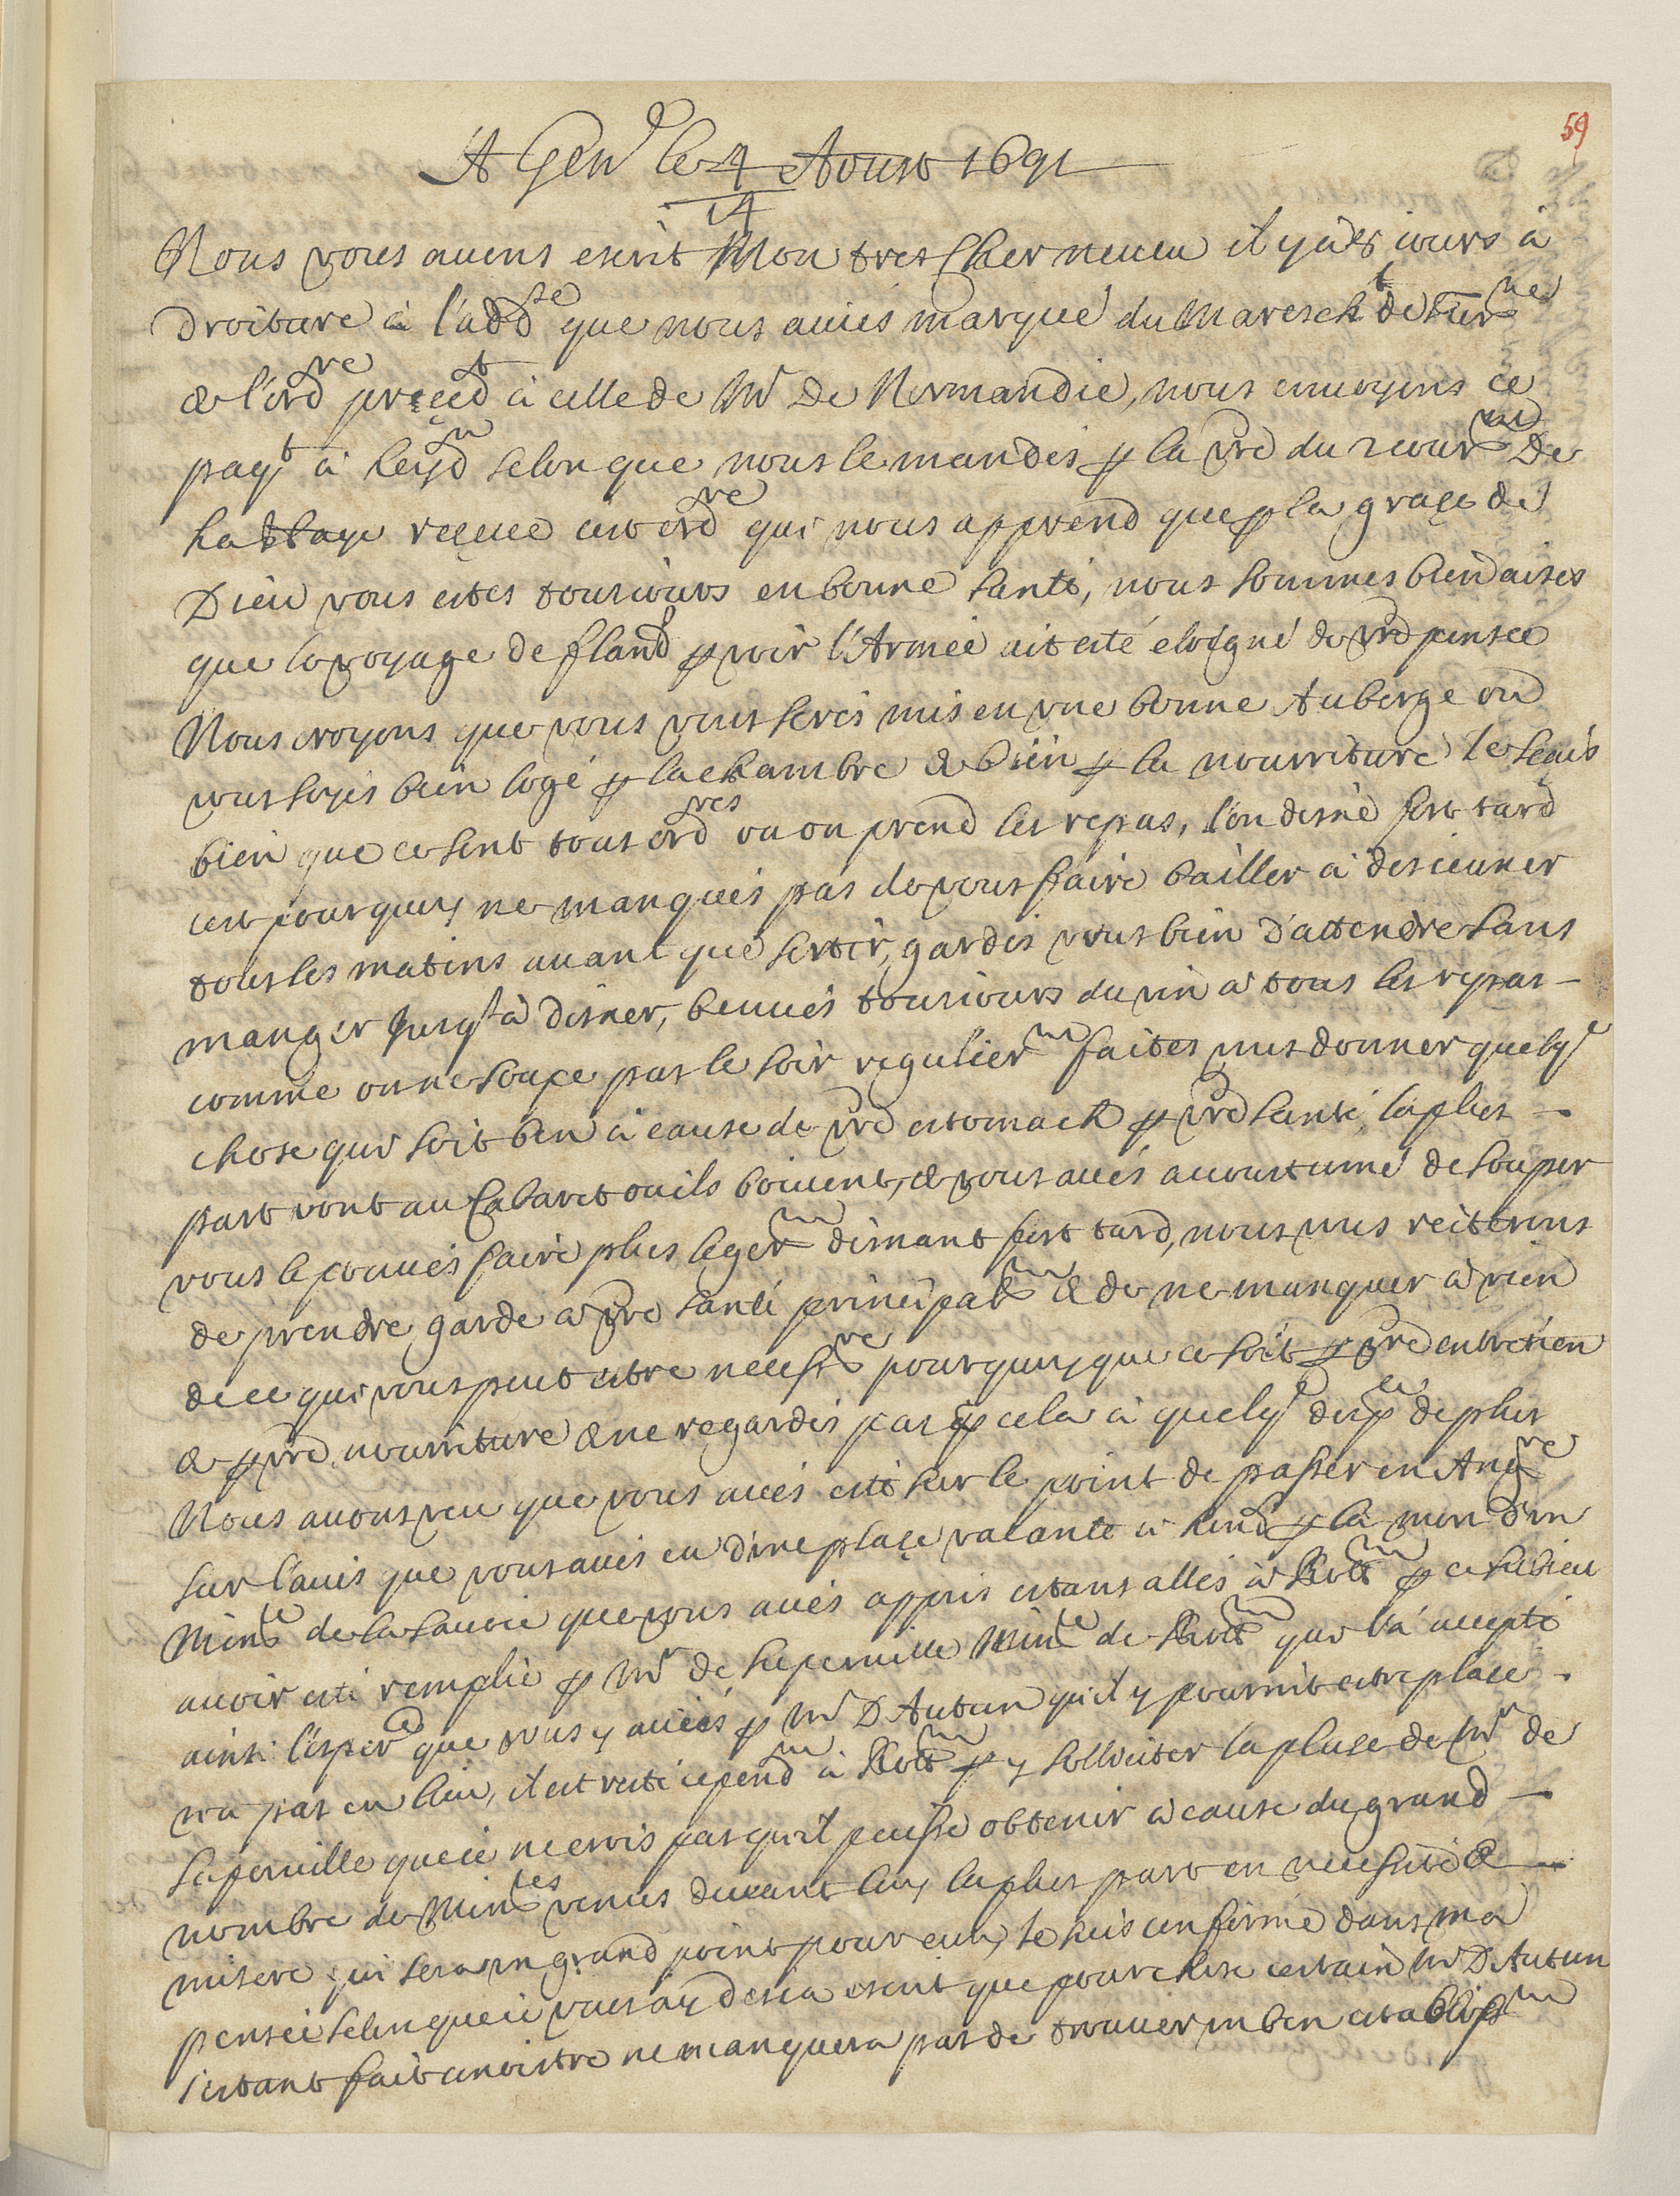 59
A Gen^e le 4/14 Aoust 1691
Nous vous auons escrit Mon tres cher neueu il y a 8 iours à
droiture à l'add^sse que nous auiés marqué du Maresch^l de Tur^ne
& l'ord^re preced^t à celle de M^r De Normandie, nous enuoyons ce
paq^t à Leyd^n selon que nous le mandés p la vre du 2 cour^ant De
La Haye reçeue cet ord^re qui nous apprend que p la graçe de
Dieu vous estes tousiours en bonne santé, nous sommes bien aises
que le voyage de fland^r p voir l'Armée ait esté eloigné de vre pensée
Nous croyons que vous vous serés mis en vne bonne Auberge où
vous soyés bien logé p la chambre & bien p la nourriture Je sçais
bien que ce sont tous ord^res où on prend les repas, l'on disne fort tard
c'est pourquoy ne manqués pas de vous faire bailler à desieuner
tous les matins auant que sortir, gardés vous bien d'attendre sans
manger jusq^s à disner, beuués tousiours du vin à tous les repas -
comme on ne soupe pas le soir regulier^m faites vous donner quelq^e
chose qui soit bon à cause de vre estomach p vre santé, la plus -
part vont au Cabaret où ils boiuent, & vous aués accoustumé de souper
vous le pouués faire plus leger^m disnant fort tard, nous vous reiterons
de prendre garde à vre santé principal^m & de ne manquer à rien
de ce qui vous peut estre necess^re pourquoy que ce soit p vre entretien
& p vre nourriture & ne regardés pas p cela à quelq^e desp^ce de plus
Nous auons veu que vous aués esté sur le point de passer en Ang^re
sur l'auis que vous aués eu d'vne place vacante à Lond^r p la mort d'vn
Min^te de la Sauoie que vous aués appris estans allés à Rott^m p ce subiect
auoir esté remplie p M^r de Superuille Min^te de Rott^m qui l'a accepté
ainsi l'esper^ce que vous y auiés p M^r D'Autun qu'il y pourroit estre place -
n'a pas eu lieu, il est resté cepend^m à Rott^m p y solliciter la place de M^r de
Superuille que ie ne crois pas qu'il puisse obtenir à cause du grand -
nombre de Min^tes venus deuant luy la plus part en necessité & -
misere qui sera vn grand point pour eux, Je suis confirmé dans ma
pensée selon que ie vous ay desia escrit que pour chose certain M^r D'Autun
s'estant fait cnoistre ne manquera pas de trouuer vn bon establiss^m